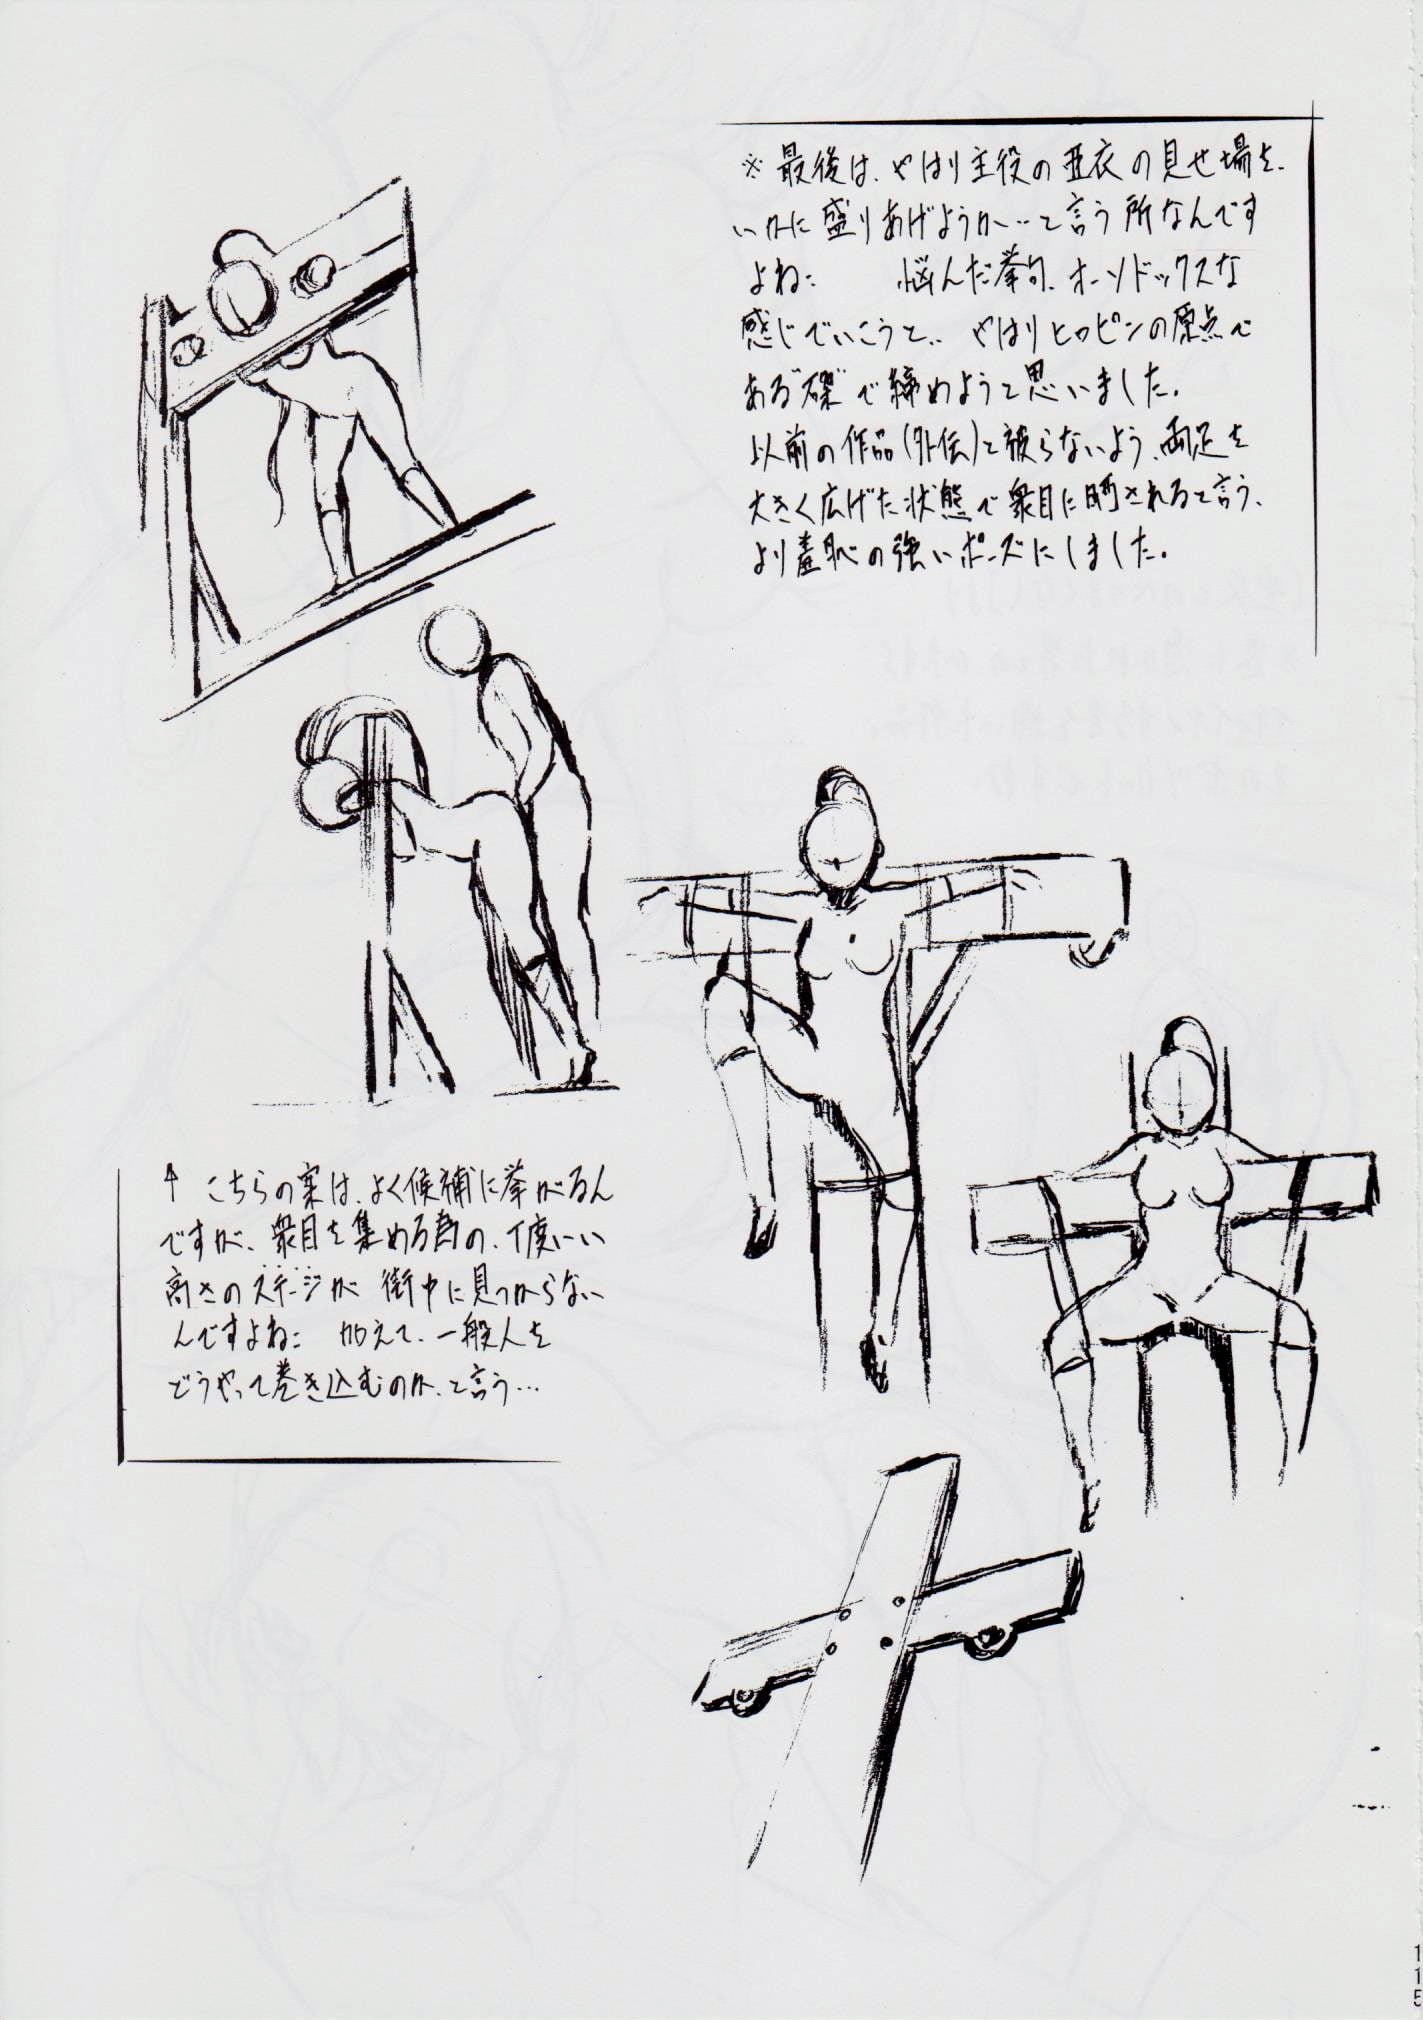 ※最後は、やはり主役の亜衣の見せ場を、
いかに盛りあげようか‥と言う所なんです
よね: 悩んだ挙句、オーソドックスな
感じでいこうと.. やはりヒロピンの原点で
ある"磔"で締めようと思いました。
以前の作品(外伝)と被らないよう、両足を
大きく広げた状態で衆目に晒されると言う、
より羞恥の強いポーズにしました。
↑ こちらの案は、よく候補に挙がるん
ですが、衆目を集める為の、丁度いい
高さのステージが街中に見つからない
んですよね: 加えて、一般人を
どうやって巻き込むのか、と言う…
115